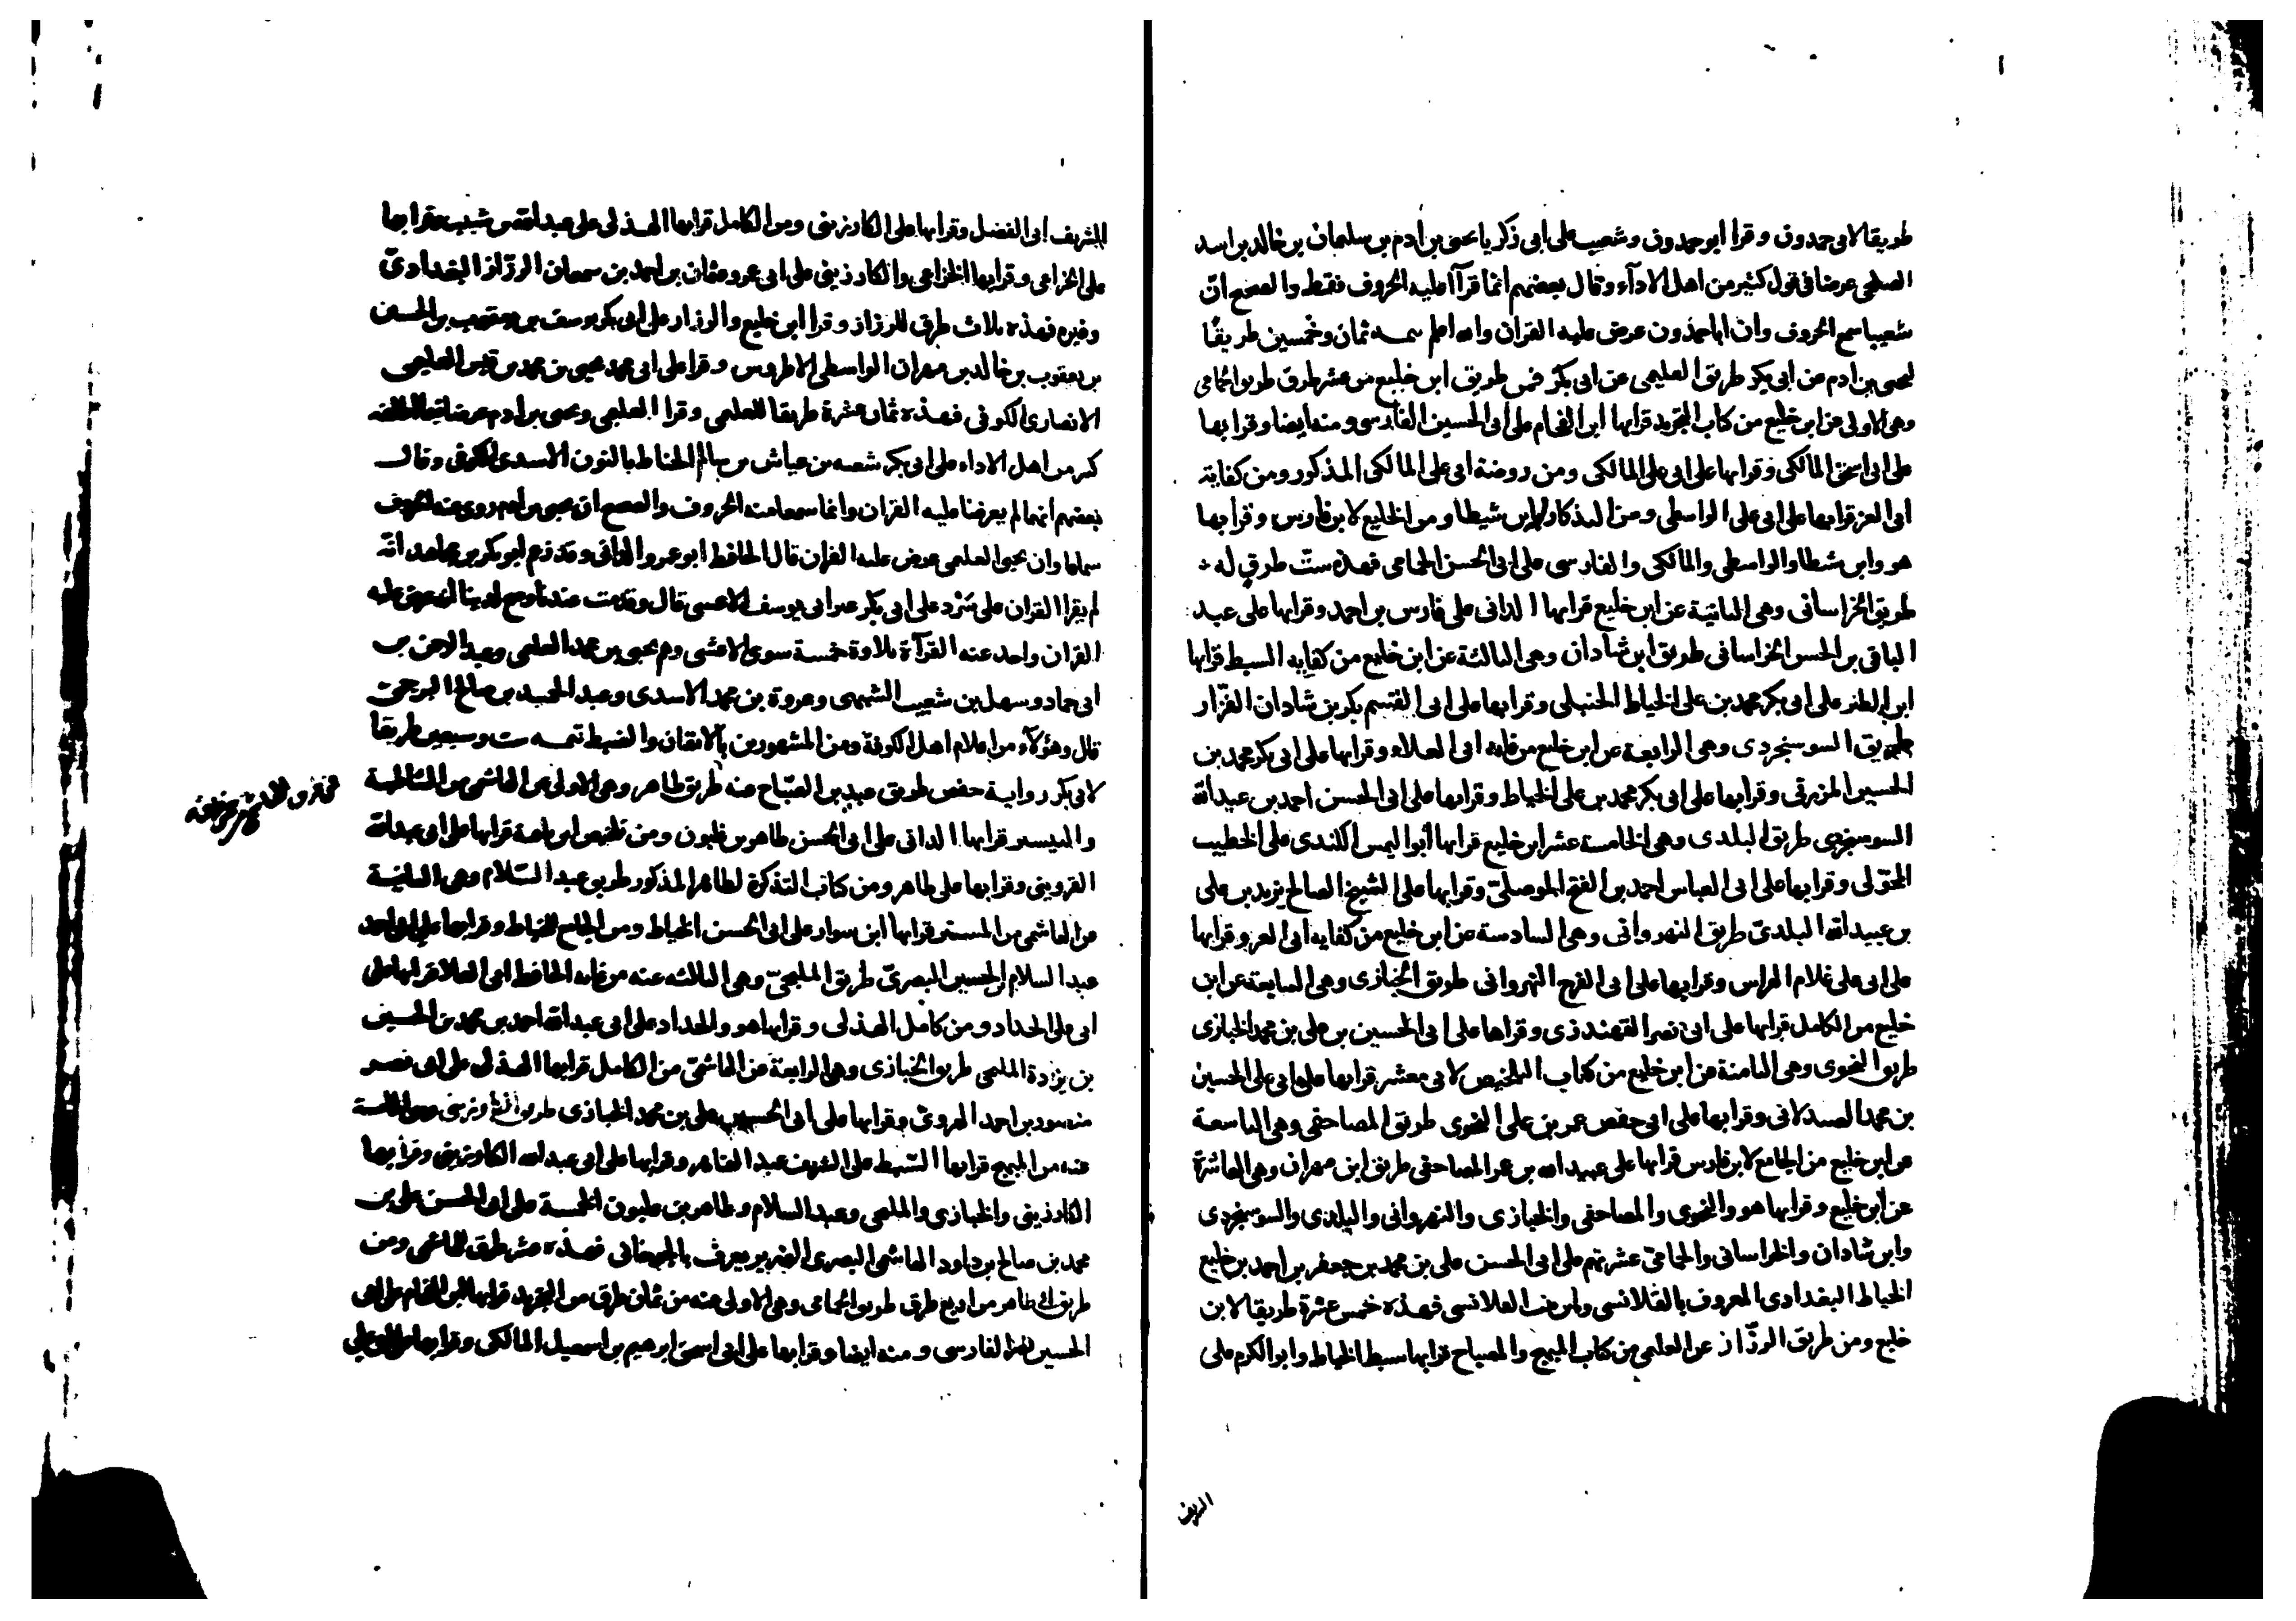 طريقا لابى حمدون وقرا ابو حمدون وشعيب على ابى زكريا يحيى بن ادم بن سليمان بن خالد بن اسد
الصلحى عرضا فى قول كثير من اهل الادآء وقال بعضهم انما قرآ عليه الحروف فقط والصحيح انّ
شعيبا سمع الحروف وان ابا حمدون عرض عليه القران والله اعلم تتمه ثمان وخمسين طريقًا
ليحيى بن ادم عن ابى بكر طريق العليمى عن ابى بكر فمن طريق ابن خليع من عشر طرق طريق الحمامى
وهى الاولى عن ابن خليع من كتاب التجريد قرا بها ابن الفحام على ابى الحسين الفارسى ومنه ايضا وقرا بها
على ابى اسحق المالكى وقرا بها على ابى على المالكى ومن روضة ابى على المالكى المذكور ومن كفاية
ابى العز قرا بها على ابى على الواسطى ومن التذكار لابن شيطا ومن الجامع لابن فارس وقرا بها
هو وابن شطا والواسطى والمالكى والفارسى على ابى الحسن الحمامى فهذه ستّ طرق له
طريق الخراسانى وهى الثانية عن ابن خليع قرا بها الدانى على فارس بن احمد وقرا بها على عبد
الباقى بن الحسن الخراسانى طريق ابن شاذان وهى الثالثة عن ابن خليع من كفايه السبط قرا بها
ابن الطبر على ابى بكر محمد بن على الخياط الحنبلى وقرا بها على ابى القسم بكر بن شاذان القزّار
طريق السوسنجردى وهى الرابعة عن ابن خليع من غايه ابى العلاء وقرا بها على ابى بكر محمد بن
الحسين المزرقى وقرا بها على ابى بكر محمد بن على الخياط وقرا بها على ابى الحسن احمد بن عبيد الله
السوسنجردى طريق البلدى وهى الخامسة عشر ابن خليع قرا بها أبوا اليمن الكندى على الخطيب
المحوّلى وقرا بها على ابى العباس احمد بن الفتح الموصلىّ وقرا بها على الشيخ الصالح يزيد بن على
بن عبيد الله البلدىّ طريق النهروانى وهى السادسة عن ابن خليع من كفايه ابى العز وقرا بها
على ابى على غلام الهراس وقرا بها على ابى الفرج النهروانى طريق الخبازى وهى السابعة عن ابن
خليع من الكامل قرا بها على ابى نصر القهندزى وقراها على ابى الحسين بن على بن محمد الخبازى
طريق النحوى وهى الثامنة عن ابن خليع من كتاب التلخيص لابى معشر قرا بها على ابى على الحسين
بن محمد الصيدلانى وقرا بها على ابى حفص عمر بن على النحوى طريق المصاحفى وهى التاسعة
عن ابن خليع من الجامع لابن فارس قرا بها على عبيد الله بن عمر المصاحفى طريق ابن مهران وهى العاشرة
عن ابن خليع وقرا بها هو والنحوى والمصاحفى والخبازى والنهروانى والبلدى والسوسنجردى
وابن شاذان والخراسانى والحمامىّ عشرتهم على ابى الحسن على بن محمد بن جعفر بن احمد بن خليع
الخياط البغدادى المعروف بالقلانسى وابن بنت القلانسى فهذه خمس عشرة طريقا لابن
خليع ومن طريق الرزّاز عن العليمى من كتاب المبهج والمصباح قرا بها سبط الخياط وابو الكرم على
الشريف
الشريف ابى الفضل وقرا بها على الكارزينى ومن الكامل قرا بها الهذلى على عبد الله بن شبيب وقرا بها
على الخزاعى وقرا بها الخزاعى والكارزينى على ابى عمرو عثمان بن احمد بن سمعان الرزّاز البغدادىّ
وغيره فهذه ثلاث طرق للرزاز وقرا ابن خليع والرزاز على ابى بكر يوسف بن يعقوب بن الحسين
بن يعقوب بن خالد بن مهران الواسطى الاطروش وقرا على ابى محمد يحيى بن محمد بن قيس العليمى
الانصارى الكوفى فهذه ثمان عشرة طريقا للعليمى وقرا العليمى ويحيى بن ادم عرضا
كثير من اهل الاداء على ابى بكر شعبه بن عياش بن سالم الحناط بالنون الاسدى الكوفى وقال
بعضهم انهما لم يعرضا عليه القران وانما سمعا منه الحروف والصحيح ان يحيى بن ادم روى عنه الحروف
سماعا وان يحيى العليمى عرض عليه القران قال الحافظ ابو عمرو الدانى وقد زعم ابو بكر بن مجاهد انّه
لم يقرا القران على سَرْد على ابى بكر غير ابى يوسف الاعشى قال وقد ثبت عندنا وصح لدينا انه عرض عليه
القران واخذ عنه القرآة تلاوة خمسة سوى الاعشى وهم يحيى بن محمد العليمى وعبد الرحمن بن
ابى حماد وسهل بن شعيب الشهبى وعروة بن محمد الاسدى وعبد الحميد بن صالح البرجمىّ
قال وهؤلآء من اعلام اهل الكوفة ومن المشهورين بالاتقان والضبط تتمه ست وسبعين طريقا
لابى بكر رواية حفص طريق عبيد بن الصّباح عنه طريق طاهر وهى الاولى عن الهاشمى من الشاطبية
والتيسير قرا بها الدانى على ابى الحسن طاهر بن غلبون ومن تلخيص ابن بلّيمة قرا بها على ابى عبد الله
القزوينى وقرا بها على طاهر ومن كتاب التذكرة لطاهر المذكور طريق عبد السّلام وهى الثانية
عن الهاشمى من المستنير قرا بها ابن سوار على ابى الحسن الخياط ومن الجامع للخياط وقرا بها على ابى احمد
عبد السلام بن الحسين البصرىّ طريق الملنجىّ وهى الثالثه عنه من غايه الحافظ ابى العلا قرا بها على
ابى على الحداد ومن كامل الهذلى وقرا بها هو والحداد على ابى عبد الله احمد بن محمد بن الحسين
بن يزدة الملنجى طريق الخبازى وهى الرابعة عن الهاشمىّ من الكامل قرا بها الهذلى على ابى نصر
منصور بن احمد الهروىّ وقرا بها على ابى الحسين على بن محمد الخبازى طريق الكارزينى وهى الخامسة
عنه من المبهج قرا بها السّبط على الشريف عبد القاهر وقرا بها على ابى عبد الله الكارزينى وقرا بها
الكارزينى والخبازى والملنجى وعبد السلام وطاهر بن غلبون الخمسة على ابى الحسن على بن
محمد بن صالح بن داود الهاشمى البصرى الضرير ويعرف بالجوخانى فهذه عشر طرق للهاشمى ومن
طريق ابى طاهر من اربع طرق طريق الحمامى وهى الاولى عنه من ثمان طرق من التجريد قرا بها ابن الفحام على ابى
الحسين نصر الفارسى ومنه ايضا وقرا بها على ابى اسحق ابرهيم بن اسمعيل المالكى وقرا بها على ابى على